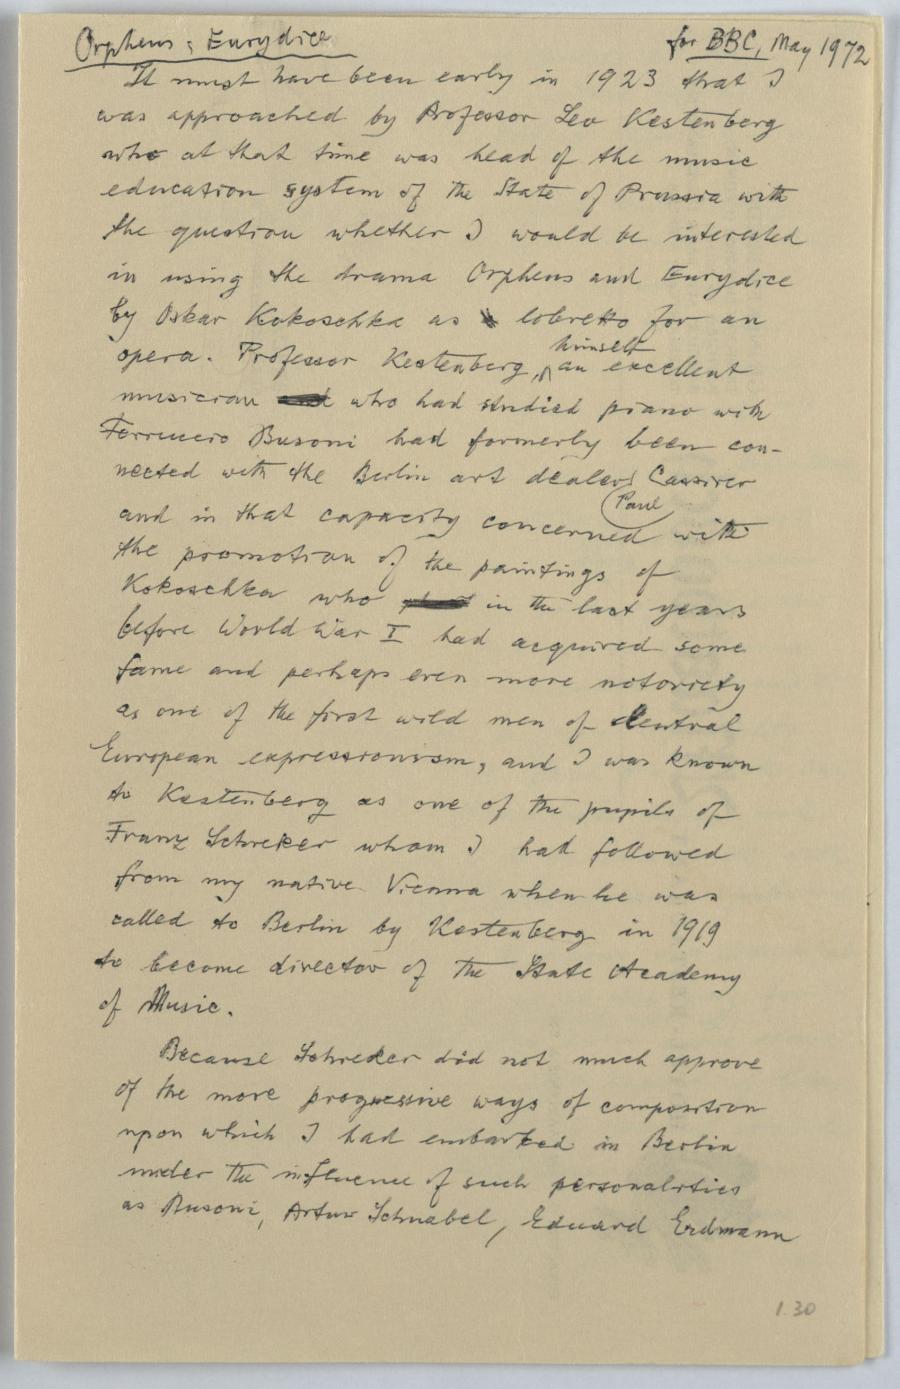 Orpheus & Eurydice
for BBC, May 1972
It must have been early in 1923 that I
was approached by Professor Leo Kestenberg
who at that time was head of the music
education system of the State of Prussia with
the question whether I would be interested
in using the drama Orpheus and Eurydice
by Oskar Kokoschka as libretto for an
opera. Professor Kestenberg, himself an excellent
musician who had studied piano with
Ferruccio Busoni had formerly been con-
nected with the Berlin art dealer Paul Cassirer
and in that capacity concerned with
the promotion of the paintings of
Kokoschka who in the last years
before World War I had acquired some
fame and perhaps even more notoriety
as one of the first wild men of Central
European expressionism, and I was known
to Kestenberg as one of the pupils of
Franz Schreker whom I had followed
from my native Vienna when he was
called to Berlin by Kestenberg in 1919
to become director of the State Academy
of Music.
Because Schreker did not much approve
of the more progressive ways of composition
upon which I had embarked in Berlin
under the influence of such personalities
as Busoni, Artur Schnabel, Eduard Erdmann
1.30